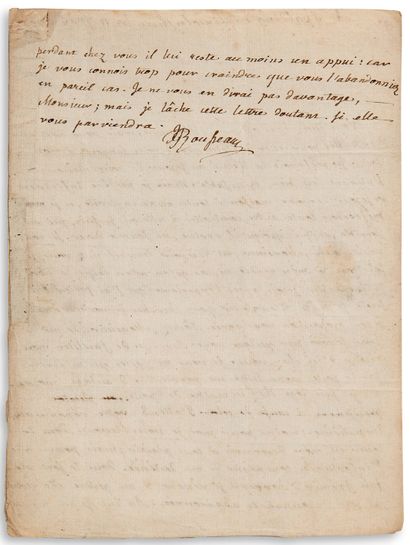 perdant chez vous il lui reste au moins un appui : car
je vous connois trop pour craindre que vous l'abandonniez
en pareil cas. Je ne vous en dirai pas davantage,
Monsieur ; mais je lâche cette lettre doutant si elle
vous parviendra.
JJRousseau